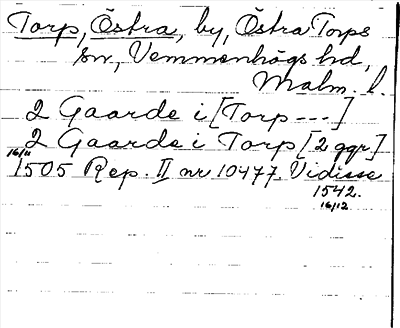 Torp, Östra, by, Östra Torps
sn, Vemmenhögs hd,
Malm. l.
2 Gaarde i [Torp ---]
2 Gaarde i Torp [2 ggr.]
16/11
1505 Rep. II nr 10477. Vidisse
1542.
16/12